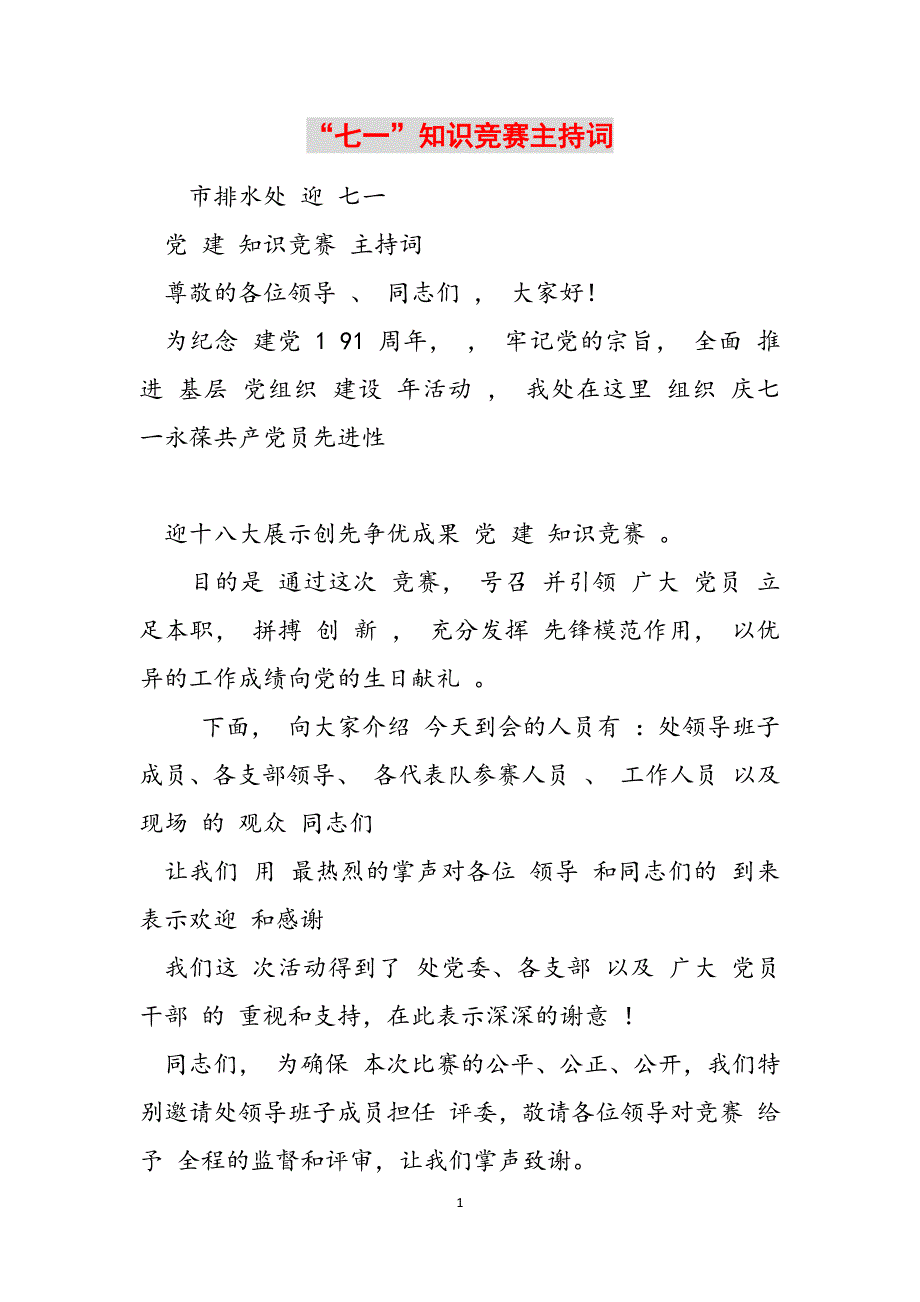 “七一”知识竞赛主持词
市排水处 迎 七一
党 建 知识竞赛 主持词
尊敬的各位领导 、 同志们 ， 大家好！
为纪念 建党 1 91 周年， ， 牢记党的宗旨， 全面 推
进 基层 党组织 建设 年活动 ， 我处在这里 组织 庆七
一永葆共产党员先进性
迎十八大展示创先争优成果 党 建 知识竞赛 。
目的是 通过这次 竞赛， 号召 并引领 广大 党员 立
足本职， 拼搏 创 新 ， 充分发挥 先锋模范作用， 以优
异的工作成绩向党的生日献礼 。
下面， 向大家介绍 今天到会的人员有 ：处领导班子
成员、各支部领导、 各代表队参赛人员 、 工作人员 以及
现场 的 观众 同志们
让我们 用 最热烈的掌声对各位 领导 和同志们的 到来
表示欢迎 和感谢
我们这 次活动得到了 处党委、各支部 以及 广大 党员
干部 的 重视和支持，在此表示深深的谢意 ！
同志们， 为确保 本次比赛的公平、公正、公开，我们特
别邀请处领导班子成员担任 评委，敬请各位领导对竞赛 给
予 全程的监督和评审，让我们掌声致谢。
1